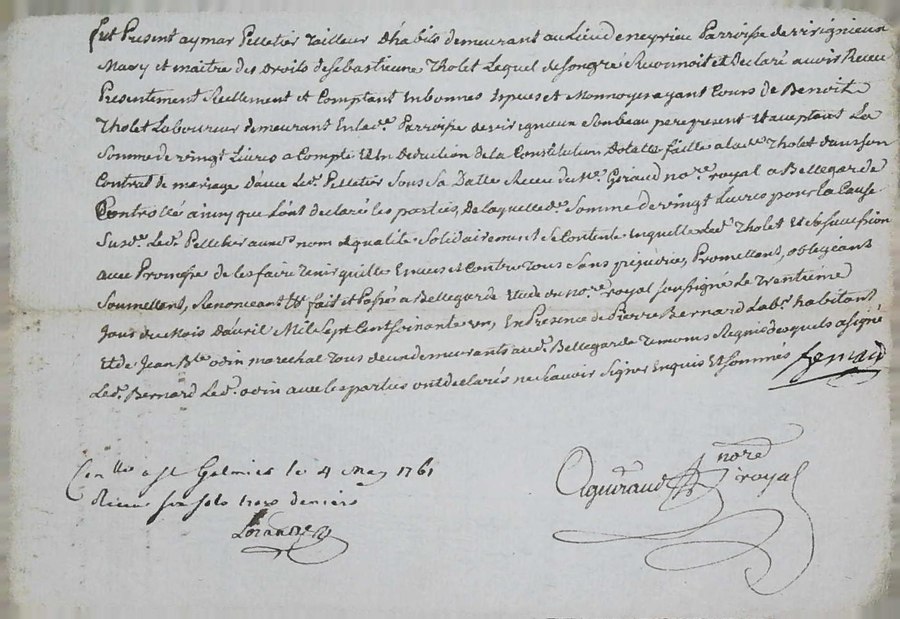 fut Present aymar Pelletier Tailleur d'habits demeurant au Lieu de neyrieu Parroisse de virignieux
Mary et maitre des Droits de Sebastienne Tholet Lequel de son gré Reconnoit et Declaré avoir Receu
Presentement Reellement et Comptant En bonnes Especes et Monnoyes ayant Cours de Benoit
Tholet Laboureur demeurant En lad.e Parroisse de virignieux Son beau pere present Et aceptant La
Somme de vingt Livres a Compte et En Deduction de la Constitution Dotalle faitte a lad.e Tholet dans son
Contrat de mariage d'avec Led. Pelletier Sous Sa Datte Receu du M.e Giraud no.re royal a Bellegarde
Controllé ainsy que L'ont declaré les parties, de laquelle d.e Somme de vingt Livres pour la Cause
Susd.e Led. Pelletier aux d. nom et qualité Solidairement Se Contente En quitte Led. Tholet Et
avec Promesse de les faire tenir quitte Envers et Contre tous Sans prejudice, Promettant, obligeant
Soumettant, Renonceant fait et Passé a Bellegarde Etude du no.re royal Soussigné Le trentieme
Jour du Mois D'avril Mil Sept Cent Soixante un, En Presence de Pierre Bernard Lab.r habitant
Et de Jean B.te odin marechal tous deux demeurants aud. Bellegarde temoins Requis desquels a signé
Led. Bernard Led. odin avec les parties ont declarés ne Scavoir Signer Enquis Et Sommés Bernard
no.re
Giraud royal
Con.llé a St Galmier le 4 May 1761
Receu six sols trois deniers